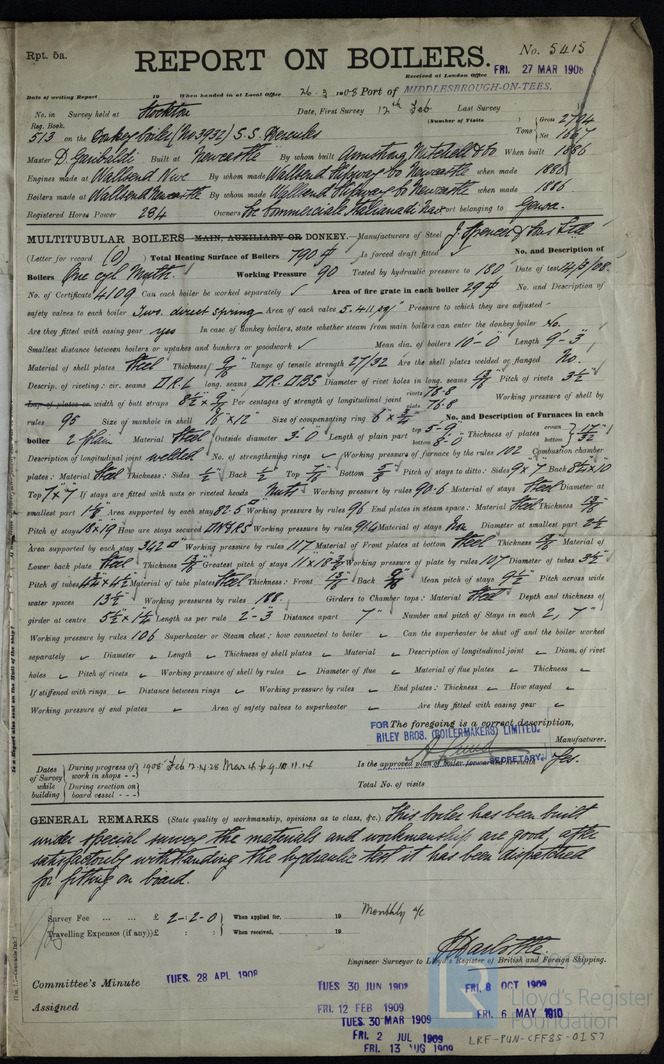 Rpt. 5a.
REPORT ON BOILERS.
No. 5415
Received at London Office FRI. 27 MAR 1908
Date of writing Report 19 When handed in at Local Office 26. 3. 1908 Port of MIDDLESBROUGH-ON-TEES.
No. in Survey held at Stockton Date, First Survey 12th Feb Last Survey
Reg. Book. (Number of Visits Gross 2704
513 on the Donkey boiler (No 3932) S.S. Hercules Tons Net 1667
Master D. Garibaldi Built at Newcastle By whom built Armstrong Mitchell & Co When built 1886
Engines made at Wallsend Nwc By whom made Wallsend Slipway Co Newcastle when made 1886
Boilers made at Wallsend Newcastle By whom made Wallsend Slipway Co Newcastle when made 1886
Registered Horse Power 284 Owners Soc Commerciale Italiana di Nav Port belonging to Genoa.
MULTITUBULAR BOILERS MAIN, AUXILIARY OR DONKEY.—Manufacturers of Steel J. Spencer & Sons Ltd
(Letter for record (O) Total Heating Surface of Boilers 790 Is forced draft fitted No. and Description of
Boilers One cyl Mult. Working Pressure 90 Tested by hydraulic pressure to 180 Date of test 14/3/08.
No. of Certificate 4109 Can each boiler be worked separately ✓ Area of fire grate in each boiler 29 No. and Description of
safety valves to each boiler Two. direct spring Area of each valve 5.411 Pressure to which they are adjusted
Are they fitted with easing gear yes In case of donkey boilers, state whether steam from main boilers can enter the donkey boiler No.
Smallest distance between boilers or uptakes and bunkers or woodwork ✓ Mean dia. of boilers 10'-0" Length 9'-3"
Material of shell plates Steel Thickness 9/16 Range of tensile strength 27/32 Are the shell plates welded or flanged No.
Descrip. of riveting: cir. seams D.R.L long. seams D.R.DBS Diameter of rivet holes in long. seams Pitch of rivets 3½"
Lap of plates or width of butt straps 8½" x Per centages of strength of longitudinal joint rivets 78.8 plate 76.8 Working pressure of shell by
rules 95 Size of manhole in shell 16" x 12" Size of compensating ring No. and Description of Furnaces in each
boiler 2 plain Material Steel Outside diameter 3'-0" Length of plain part top 5-9 bottom 8-0 Thickness of plates crown bottom 17/32
Description of longitudinal joint welded No. of strengthening rings ✓ Working pressure of furnace by the rules 102 Combustion chamber
plates: Material Steel Thickness: Sides ½" Back ½" Top Bottom 5/8 Pitch of stays to ditto: Sides 9 x 7 Back 8½ x 10
Top 7 x 7 If stays are fitted with nuts or riveted heads Nuts Working pressure by rules 90.6 Material of stays Steel Diameter at
smallest part Area supported by each stay 82.5 Working pressure by rules 96 End plates in steam space: Material Steel Thickness
Pitch of stays 18 x 19 How are stays secured DN&RS Working pressure by rules 91.4 Material of stays Diameter at smallest part
Area supported by each stay 342 Working pressure by rules 117 Material of Front plates at bottom Steel Thickness Material of
Lower back plate Steel Thickness Greatest pitch of stays Working pressure of plate by rules 107 Diameter of tubes 3½"
Pitch of tubes Material of tube plates Steel Thickness: Front Back Mean pitch of stays 9½" Pitch across wide
water spaces 13½" Working pressures by rules 188. Girders to Chamber tops: Material Steel Depth and thickness of
girder at centre 5½" x 1½ Length as per rule 2'-3 Distance apart 7" Number and pitch of Stays in each 2, 7"
Working pressure by rules 106 Superheater or Steam chest; how connected to boiler Can the superheater be shut off and the boiler worked
separately Diameter Length Thickness of shell plates Material Description of longitudinal joint Diam. of rivet
holes Pitch of rivets Working pressure of shell by rules Diameter of flue Material of flue plates Thickness
If stiffened with rings Distance between rings Working pressure by rules End plates: Thickness How stayed
Working pressure of end plates Area of safety valves to superheater Are they fitted with easing gear
The foregoing is a correct description,
FOR RILEY BROS. (BOILERMAKERS) LIMITED.
Manufacturer.
SECRETARY.
Dates of Survey while building During progress of work in shops - - 1908 Feb 12.14.28 Mar 4.6.9.10.11.14
During erection on board vessel - - -
Is the approved plan of boiler forwarded herewith Yes.
Total No. of visits
GENERAL REMARKS (State quality of workmanship, opinions as to class, &c.) This boiler has been built
under special survey the materials and workmanship are good, after
satisfactorily withstanding the hydraulic test it has been dispatched
for fitting on board.
Survey Fee ... ... £ 2-:2-:0 When applied for, 19 Monthly a/c
Travelling Expenses (if any) £ : : When received, 19
Engineer Surveyor to Lloyd's Register of British and Foreign Shipping.
Committee's Minute TUES. 28 APL 1908 TUES 30 JUN 1908 FRI. 8 OCT 1909
Assigned FRI. 12 FEB 1909 FRI. 6 MAY 1910
TUES. 30 MAR 1909
FRI. 2 JUL 1909
FRI. 13 AUG 1909
Lloyd's Register
Foundation
LRF-PUN-CFF85-0157